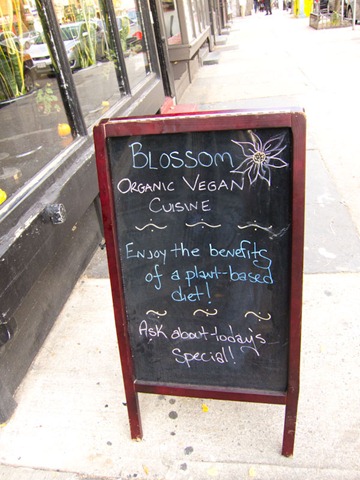 Blossom
Organic Vegan
Cuisine
Enjoy the benefits
of a plant-based
diet!
Ask about today's
Special!